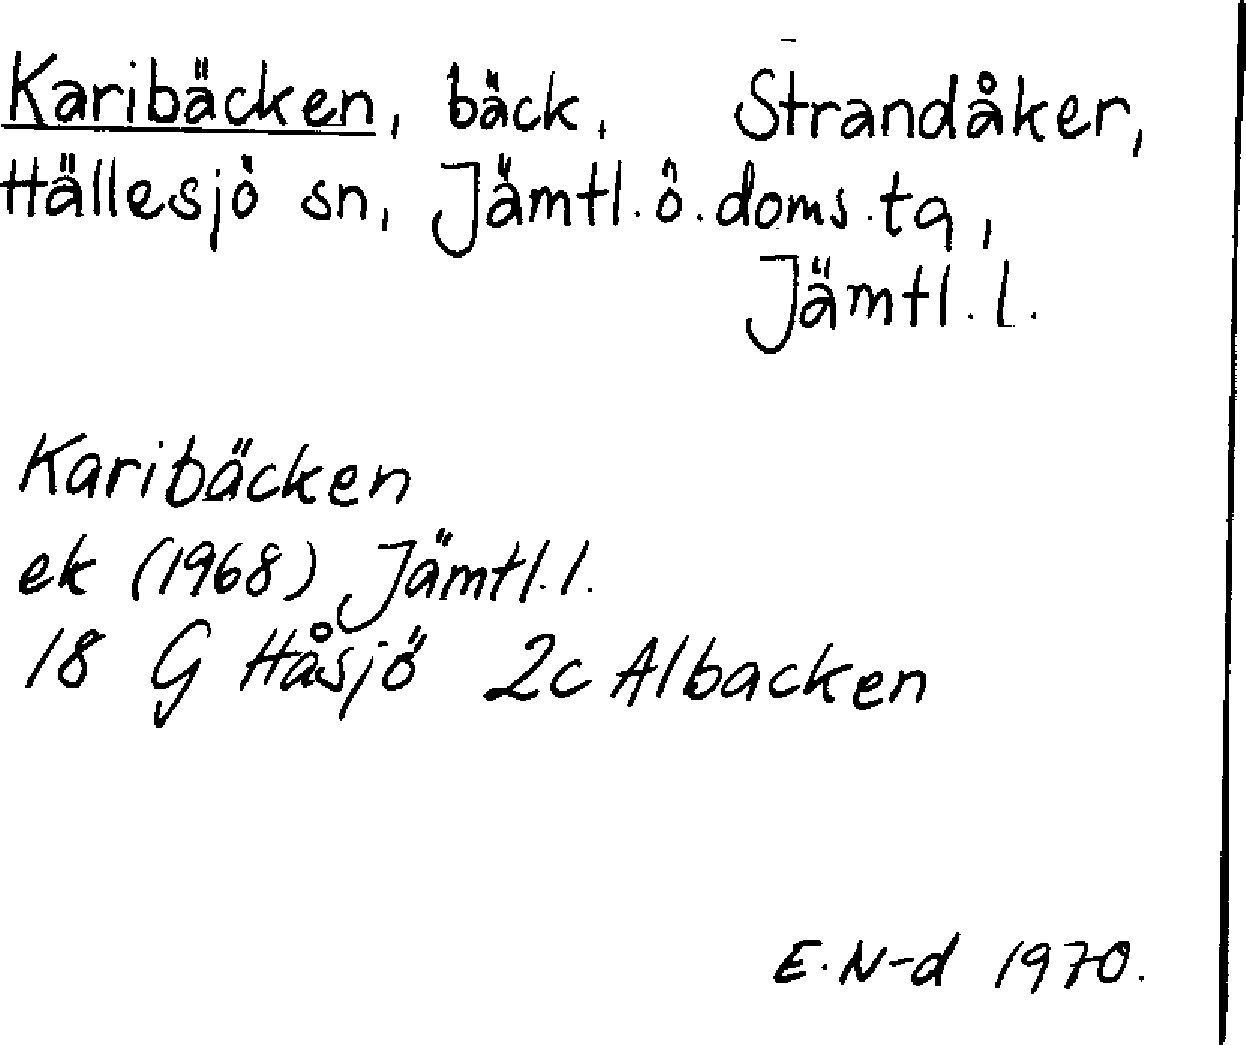 Karibäcken, bäck, Strandåker,
Hällesjö sn, Jämtl. ö. doms. tg,
Jämtl. l.
Karibäcken
ek (1968) Jämtl. l.
18 G Håsjö 2c Albacken
E. N-d 1970.